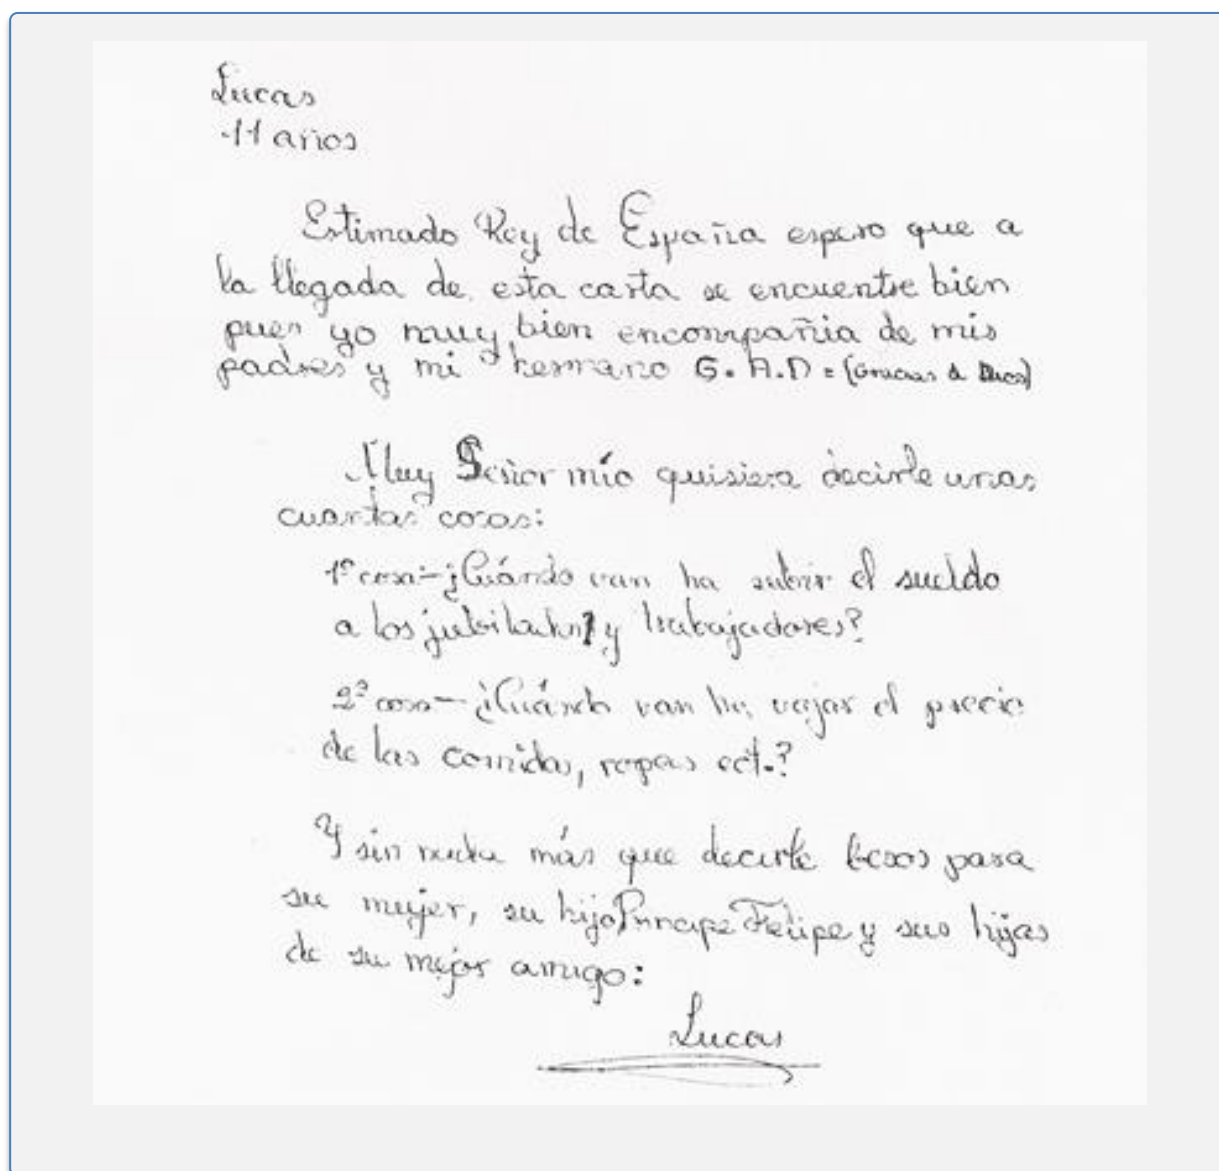 Lucas
11 años
Estimado Rey de España espero que a
la llegada de esta carta se encuentre bien
pues yo muy bien encompañia de mis
padres y mi hermano G. A. D = (Gracias a Dios)
Muy Señor mío quisiera decirle unas
cuantas cosas:
1ª cosa-¿Cuándo van ha subir el sueldo
a los jubilados y trabajadores?
2ª cosa-¿Cuándo van ha vajar el precio
de las comidas, ropas ect.?
Y sin nada más que decirle besos para
su mujer, su hijo Principe Felipe y sus hijas
de su mejor amigo:
Lucas